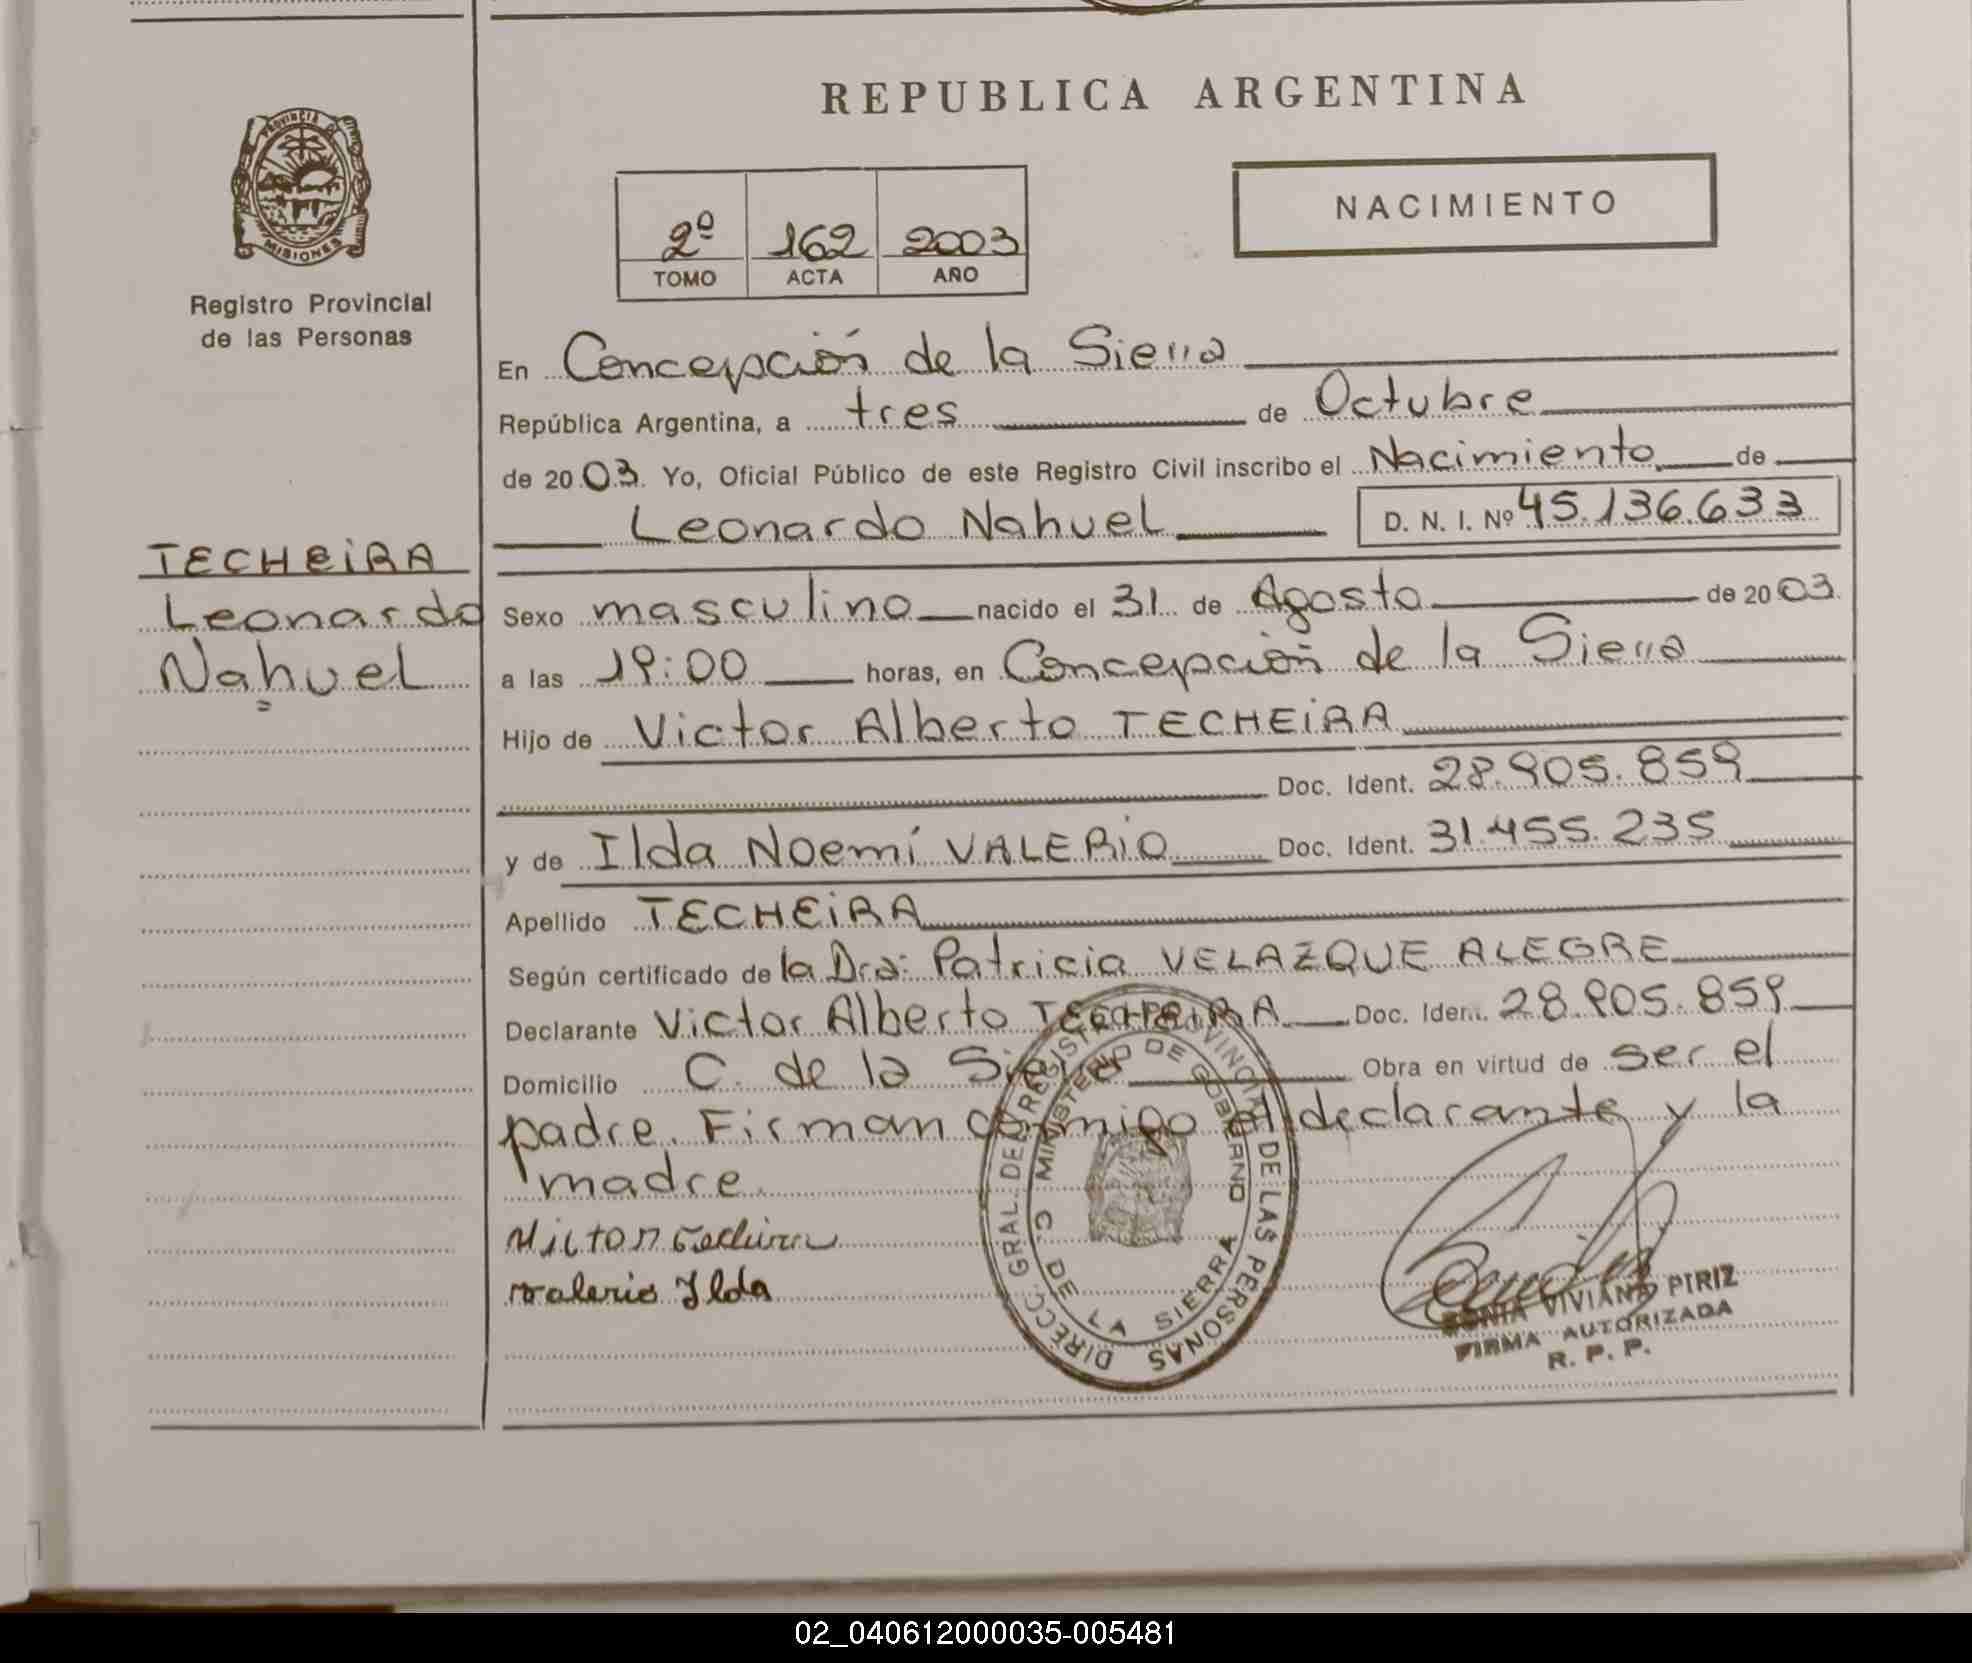 REPUBLICA ARGENTINA
PROVINCIA DE
MISIONES
Registro Provincial
de las Personas
2º 162 2003
TOMO ACTA AÑO
NACIMIENTO
En Concepción de la Sierra
República Argentina, a tres de Octubre
de 2003. Yo, Oficial Público de este Registro Civil inscribo el Nacimiento de
Leonardo Nahuel D. N. I. Nº 45.136.633
TECHEIRA
Leonardo
Nahuel
Sexo masculino nacido el 31 de Agosto de 2003
a las 19:00 horas, en Concepción de la Sierra
Hijo de Victor Alberto TECHEIRA
Doc. Ident. 28.905.859
y de Ilda Noemí VALERIO Doc. Ident. 31.455.235
Apellido TECHEIRA
Según certificado de la Dra: Patricia VELAZQUE ALEGRE
Declarante Victor Alberto TECHEIRA Doc. Iden. 28.905.859
Domicilio C. de la Sierra Obra en virtud de ser el
padre. Firman conmigo el declarante y la
madre.
Victor Techeira
Valerio Ilda
DIRECC. GRAL. DEL REGISTRO PROVINCIAL DE LAS PERSONAS
MINISTERIO DE GOBIERNO
C. DE LA SIERRA
SONIA VIVIANA PIRIZ
FIRMA AUTORIZADA
R. P. P.
02_040612000035-005481